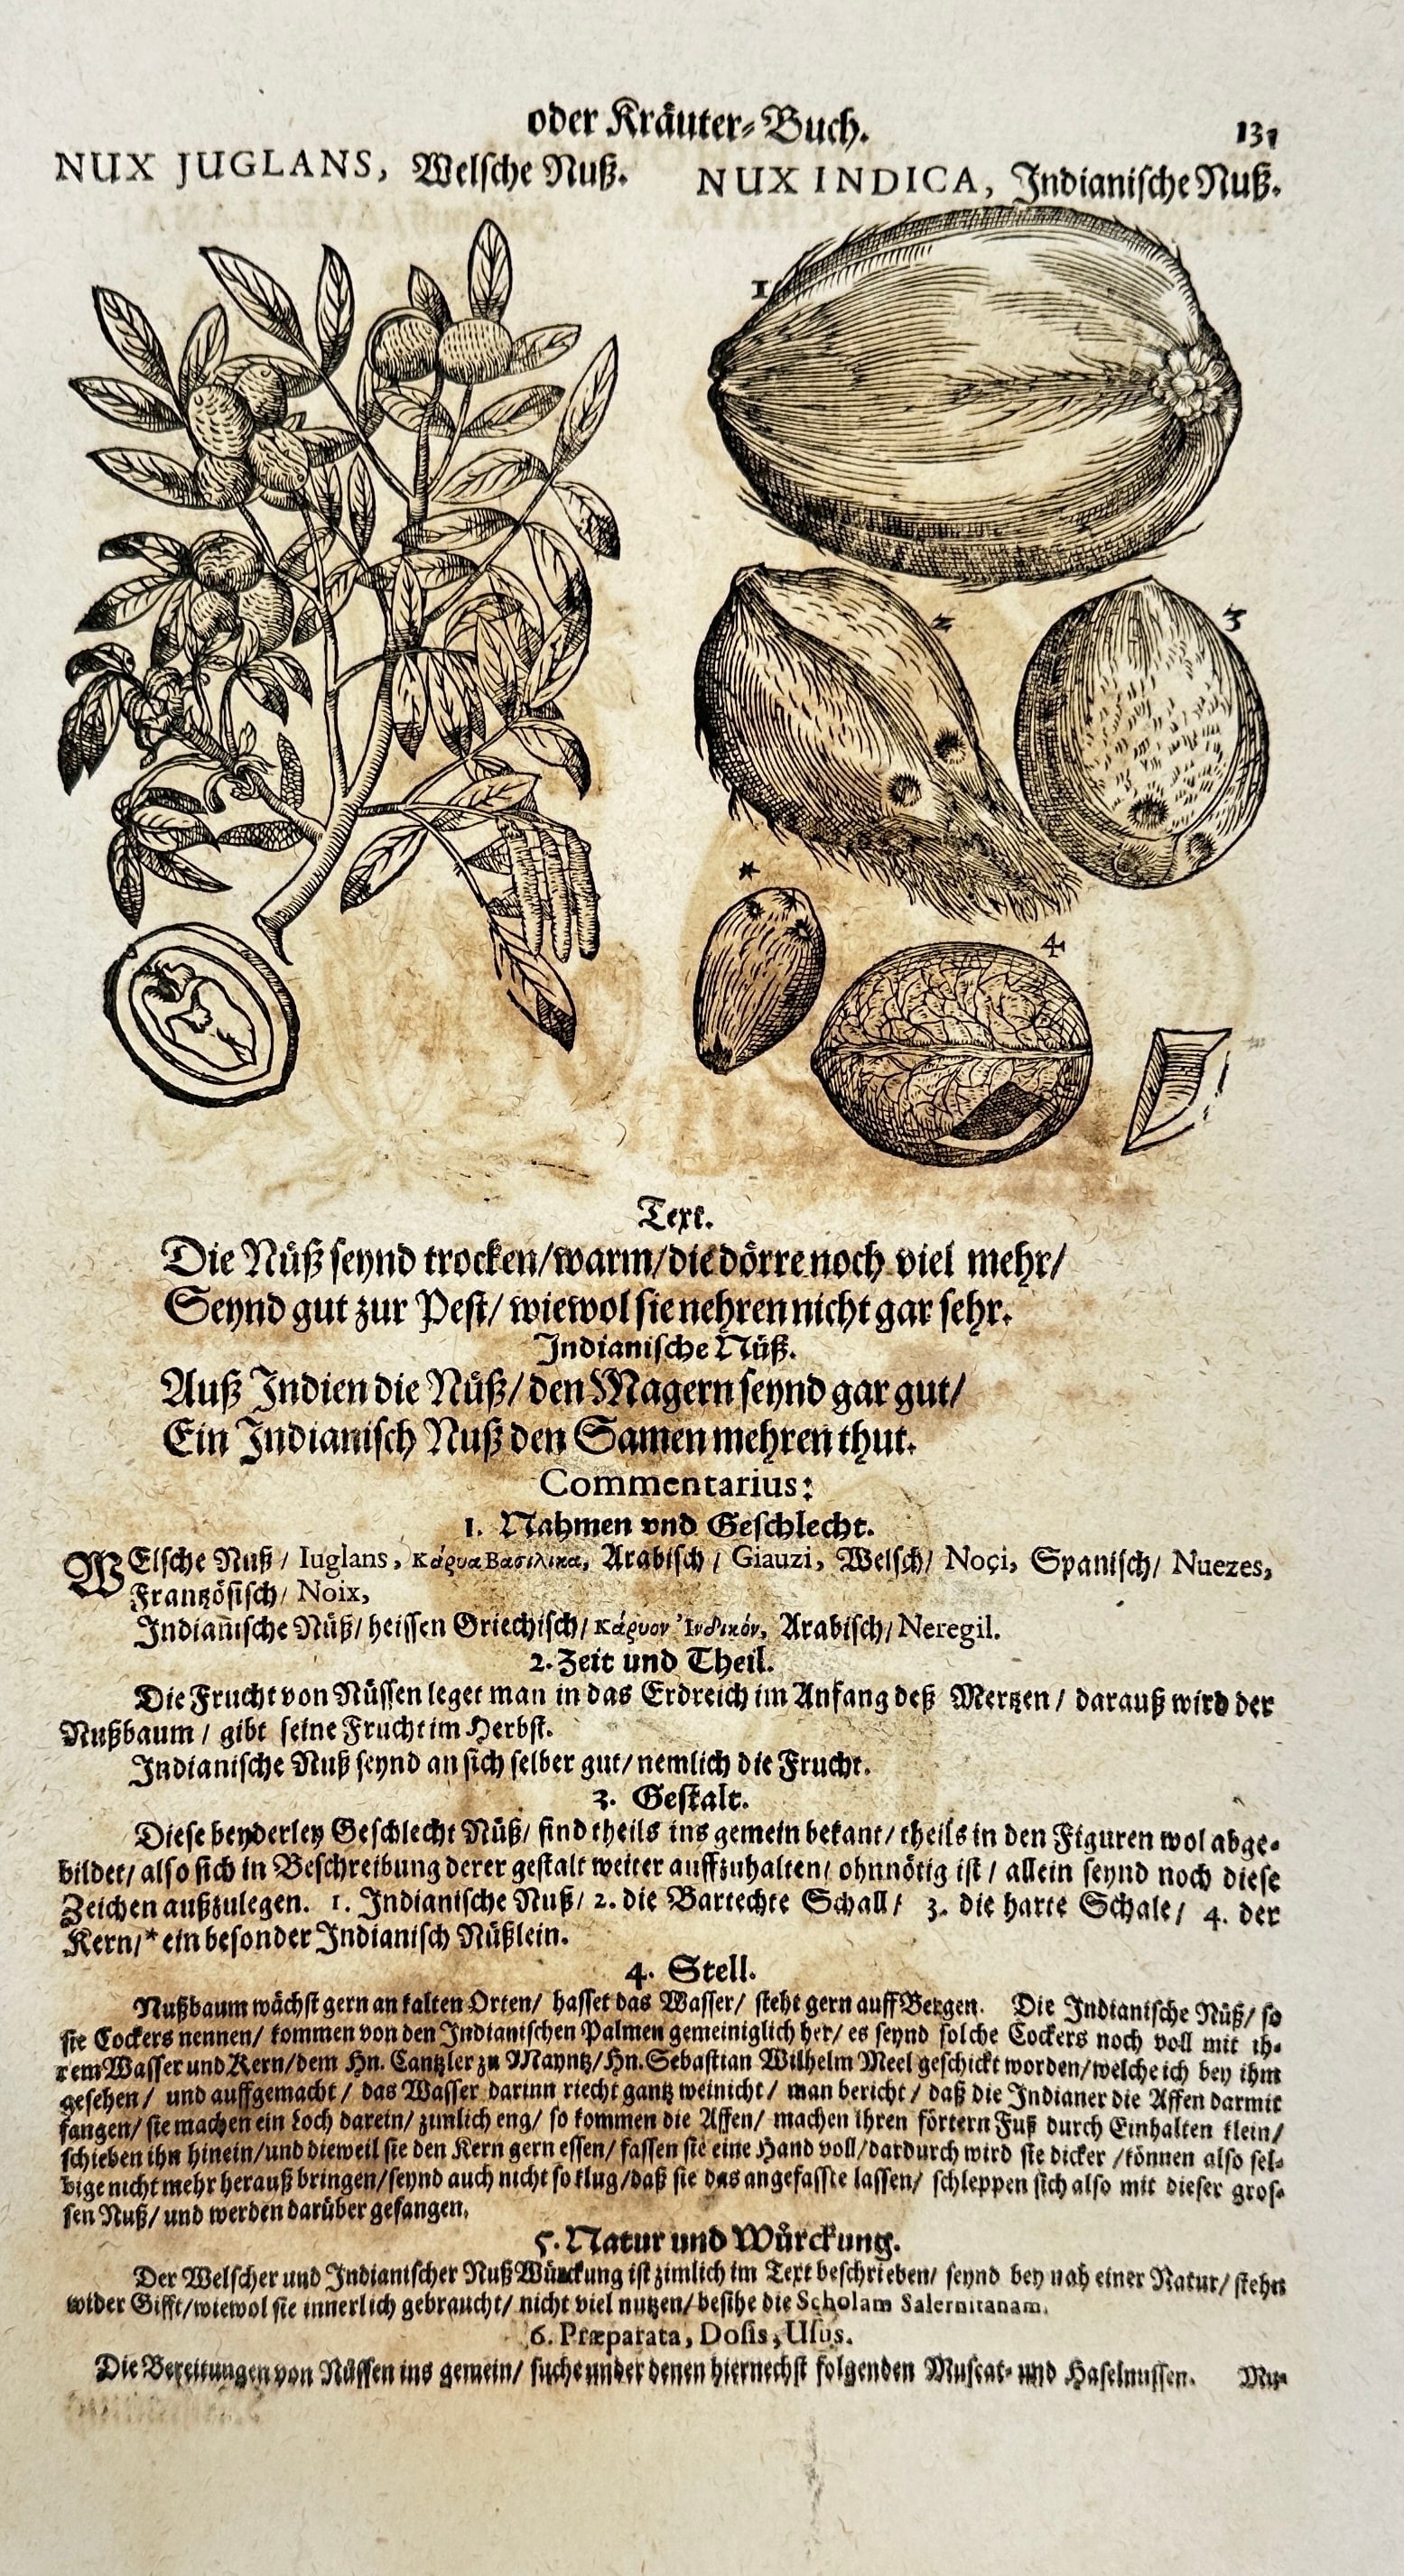 oder Kräuter-Buch. 131
NUX JUGLANS, Welsche Nuß. NUX INDICA, Indianische Nuß.
1
2
3
*
4
Text.
Die Nüß seynd trocken/warm/die dörre noch viel mehr/
Seynd gut zur Pest/ wiewol sie nehren nicht gar sehr.
Indianische Nüß.
Auß Indien die Nüß/ den Magern seynd gar gut/
Ein Indianisch Nuß den Samen mehren thut.
Commentarius:
1. Nahmen vnd Geschlecht.
WElsche Nuß/ Iuglans, Κάρυα Βασιλικα, Arabisch/ Giauzi, Welsch/ Noçi, Spanisch/ Nuezes,
Frantzösisch/ Noix,
Indianische Nüß/ heissen Griechisch/ Κάρυον Ἰνδικόν, Arabisch/ Neregil.
2. Zeit und Theil.
Die Frucht von Nüssen leget man in das Erdreich im Anfang deß Mertzen/ darauß wird der
Nußbaum/ gibt seine Frucht im Herbst.
Indianische Nuß seynd an sich selber gut/ nemlich die Frucht.
3. Gestalt.
Diese beyderley Geschlecht Nüß/ sind theils ins gemein bekant/ theils in den Figuren wol abge-
bildet/ also sich in Beschreibung derer gestalt weiter auffzuhalten/ ohnnötig ist/ allein seynd noch diese
Zeichen außzulegen. 1. Indianische Nuß/ 2. die Bartechte Schall/ 3. die harte Schale/ 4. der
Kern/ * ein besonder Indianisch Nüßlein.
4. Stell.
Nußbaum wächst gern an kalten Orten/ hasset das Wasser/ steht gern auff Bergen. Die Indianische Nüß/ so
sie Cockers nennen/ kommen von den Indianischen Palmen gemeiniglich her/ es seynd solche Cockers noch voll mit ih-
rem Wasser und Kern/ dem Hn. Cantzler zu Mayntz/ Hn. Sebastian Wilhelm Meel geschickt worden/ welche ich bey ihm
gesehen/ und auffgemacht/ das Wasser darinn riecht gantz weinicht/ man bericht/ daß die Indianer die Affen darmit
fangen/ sie machen ein Loch darein/ zimlich eng/ so kommen die Affen/ machen ihren förtern Fuß durch Einhalten klein/
schieben ihn hinein/ und dieweil sie den Kern gern essen/ fassen sie eine Hand voll/ dardurch wird sie dicker/ können also sel-
bige nicht mehr herauß bringen/ seynd auch nicht so klug/ daß sie das angefasste lassen/ schleppen sich also mit dieser gros-
sen Nuß/ und werden darüber gefangen.
5. Natur und Würckung.
Der Welscher und Indianischer Nuß Würckung ist zimlich im Text beschrieben/ seynd bey nah einer Natur/ stehn
wider Gifft/ wiewol sie innerlich gebraucht/ nicht viel nutzen/ besihe die Scholam Salernitanam.
6. Præparata, Dosis, Usus.
Die Bereitungen von Nüssen ins gemein/ suche under denen hiernechst folgenden Muscat- und Haselnussen. Mu-